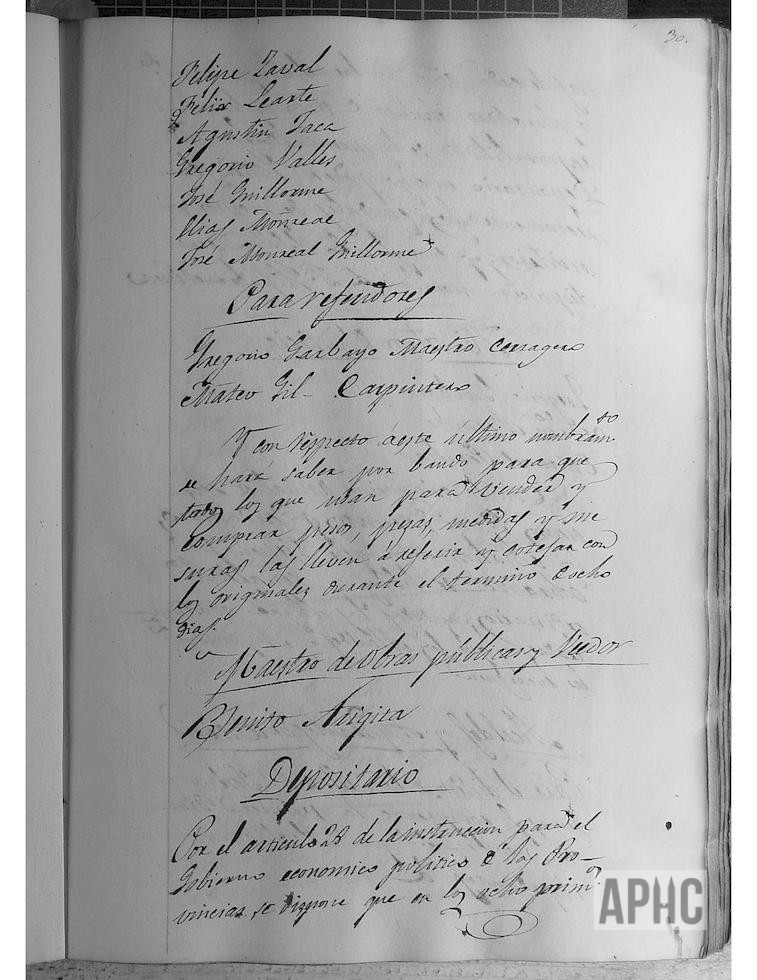 30.
Felipe Zaval
Felix Learte
Agustin Jaca
Gregorio Valles
José Guillorme
Elias Monreal
José Monreal Guillorme
Para refendores
Gregorio Garbayo Maestro Cerragero
Mateo Gil - Carpintero
Y con respecto á este último nombramto
se hará saber por bando para que
todos los que usan para vender y
comprar pesos, pezas, medidas y me
suras las lleven á referir y cotejar con
los originales durante el termino de ocho
dias.
Maestro de obras públicas y Veedor
Benito Arigita
Depositario
Por el articulo 28 de la instruccion para el
Gobierno economico politico de las Pro-
vincias se dispone que en los ocho primos
APHC